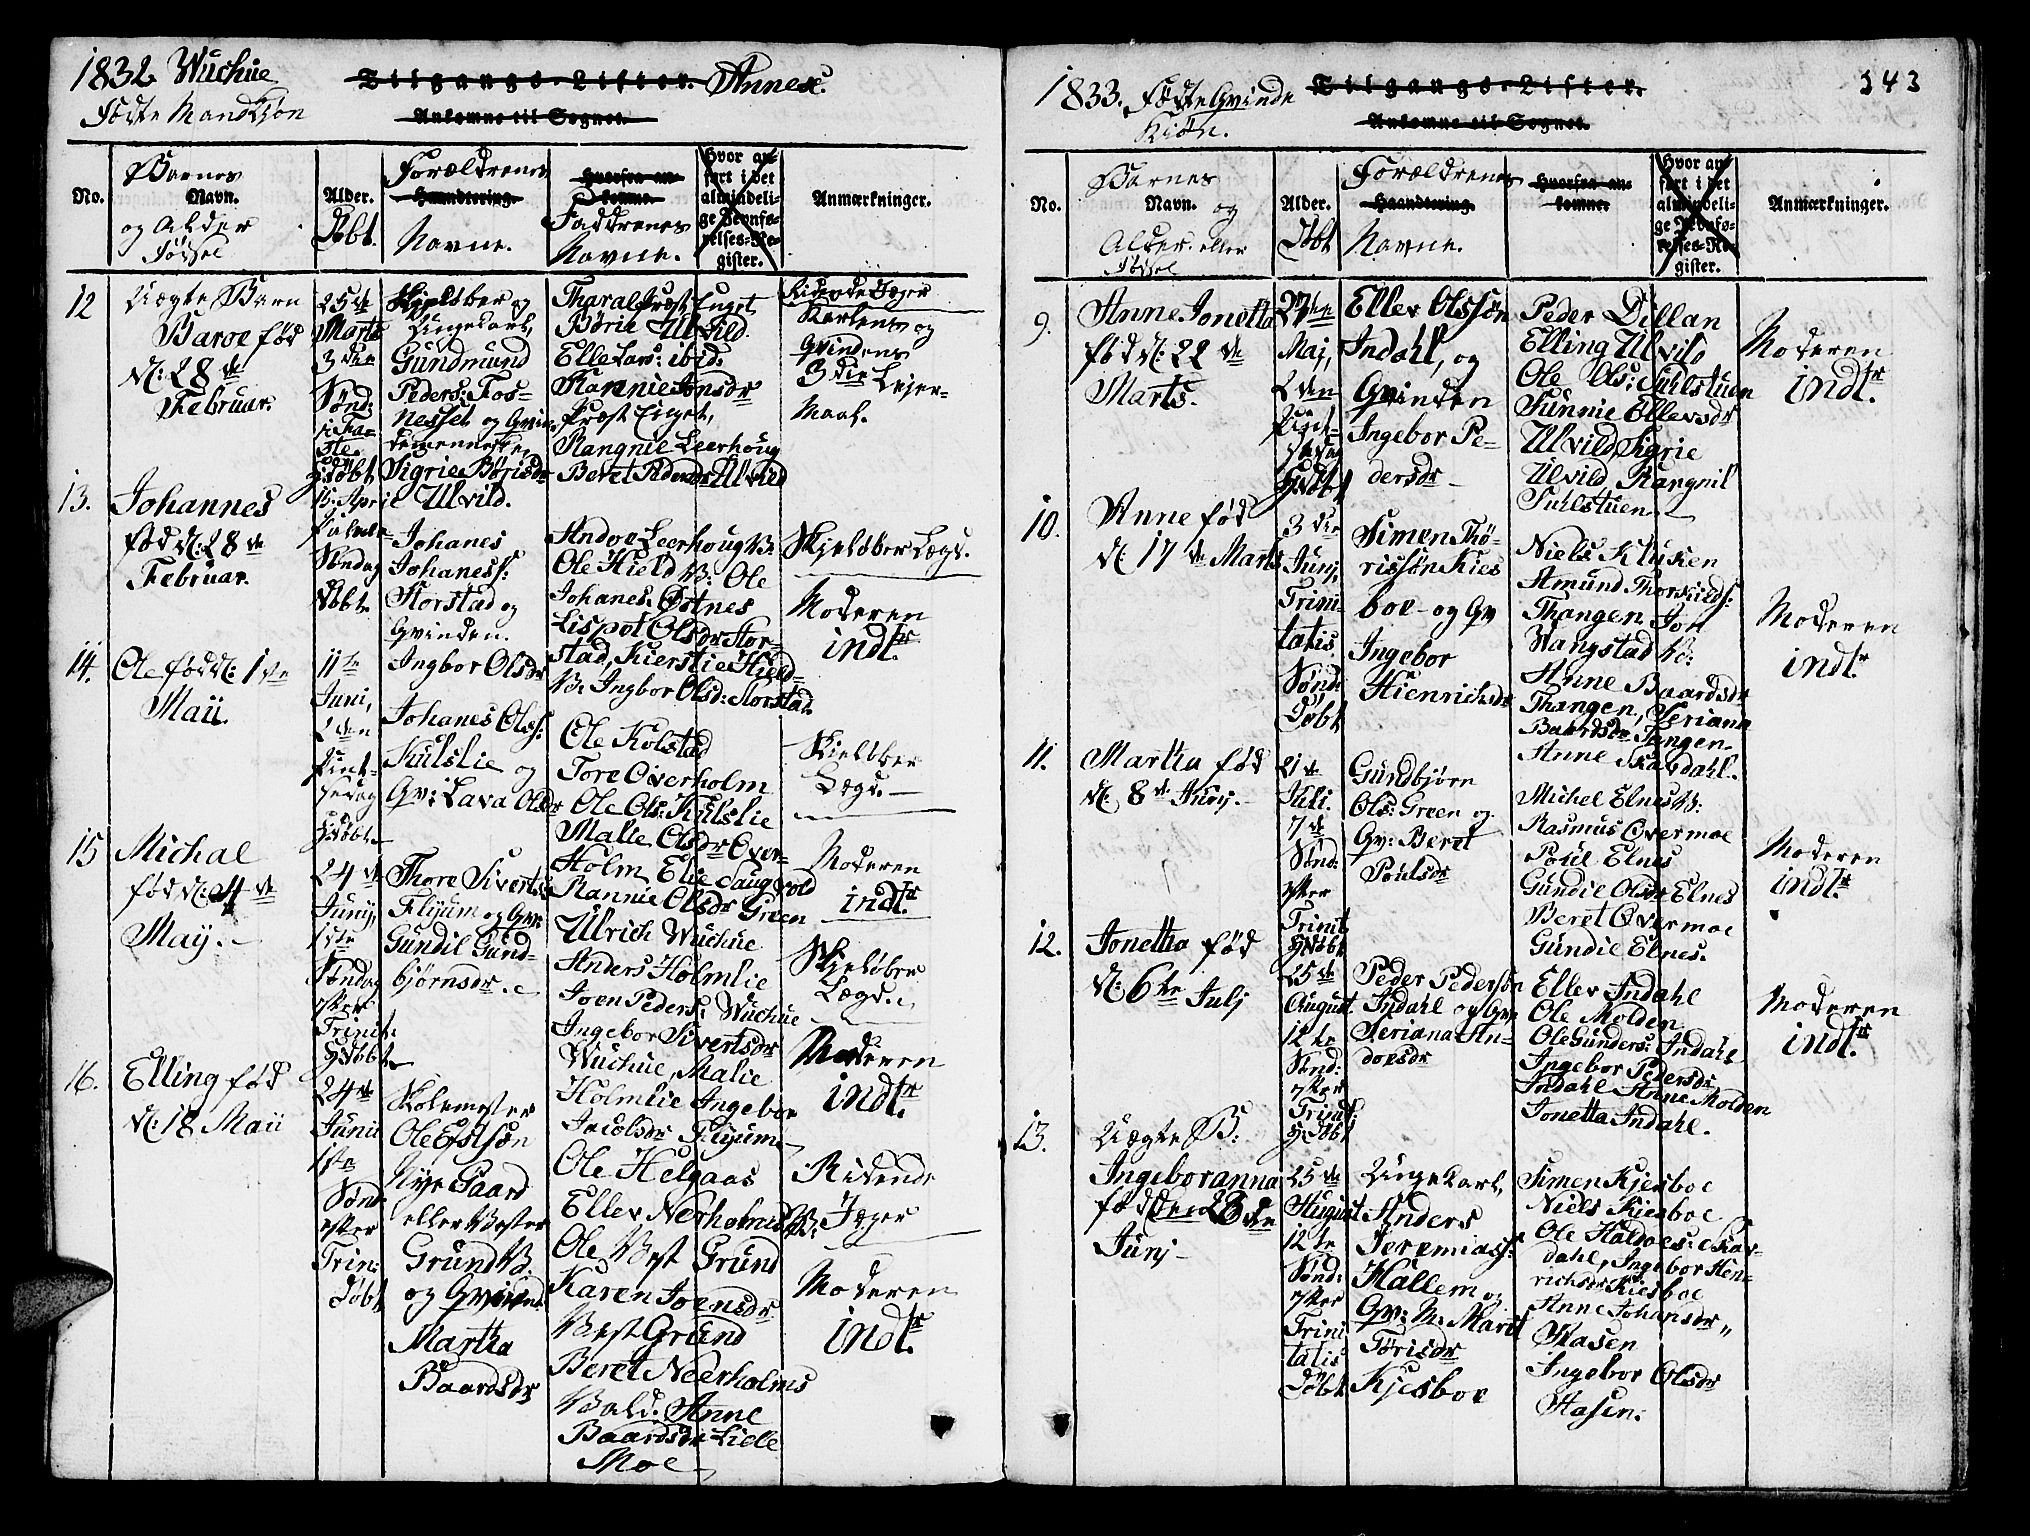 1832 Wuchue
Tilgangs-Lister. Annex.
Fødte Mandkjøn
Ankomne til Sognet.
No.
Barnes
Navn.
og Alder
Fødsel
Alder.
Døbt.
Forældrenes
Haandtering.
Navne.
Hvorfra an-
komne.
Faddrenes
Navne.
Hvor an-
ført i det
almindeli-
ge Jevnfø-
relses-Re-
gister.
Anmærkninger.
12
Uægte Barn
Baroe fød
d: 28de
Februar.
25de
Marts
3die
Sønd:
i Fa-
ste.
Hdøbt
og
Ungekarl
Gundmund
Peders: Fos-
Nesset og Qvin
demennesken
Sigrie Børisdr
Ulvild.
Tharal Præst Enget
Børie Ulvild.
Elle Lars: ibid:
Rannie Jonsdr
Præst Enget,
Rangnil Leerhoug
Beret Pedersdr Ulvild
Ridende Jæger
Karlens og
Qvindens
3die Leier-
Maal.
13.
Johannes
fød d: 28de
Februar.
15. April
Palme-
Søndag
Døbt
Johanes
Johaness:
Storstad og
Qvinden.
Ingbor Olsdr
Andoe Leerhoug B:
Ole Hield B: Ole
Johanes: Østnes
Lispot Olsdr Stor-
stad, Kierstie Hield
B: Ingbor Olsd: Storstad.
Skieløber Lægd.
Moderen
indtr.
14.
Ole fød d: 1ste
Maii.
11te
Juni,
2den
Pint-
sedag
Hdøbt
Johanes Olss:
Kulslie og
Qv: Lava Olsdr
Ole Kolstad
Tore Overholm
Ole Ols: Kulslie
Malle Olsdr Over-
Holm, Elie Saugvold
Rannie Olsdr Green
Skieløber
Lægd.
Moderen
indtr.
15
Michal
fød d: 4de
May.
24de
Junij,
1ste
Søndag
efter
Trinit:
Hdøbt
Thore Siverts:
Flyum og Qv:
Gundil Gund-
bjørnsdr.
Ulrich Wuchue
Anders Holmlie
Joen Peders: Wuchue
Ingebor Sivertsdr
Wuchue, Malie
Holmlie Ingebor
Jacolsdr Flyum
Skjeløber
Lægd.
Moderen
indtr.
16.
Elling fød
d: 18 Maii
24de
Junii
1ste
Sønd
efter
Trin:
Døbt
Skolemester
Ole Estsøn
Nye Gaard
eller Vester
Grund B.
og Qvinde
Martha
Baardsdr
Ole Helgaas
Ellev Nerholms B:
Ole Vest Grund
Karen Joensdr
Vest Grund
Beret Neerholms
Vald: Anne
Baardsdr Lille
Moe
Ridende
Jæger
Moderen
indtr.
1833. Fødte Qvinde
Kiøn.
Tilgangs-Lister.
Ankomne til Sognet.
343
No.
Barnes
Navn.
og
Alder eller
Fødsel
Alder.
Døbt
Forældrenes
Haandtering.
Navne.
Hvorfra an-
komne.
Hvor an-
ført i det
almindeli-
ge Jevnfø-
relses-Re-
gister.
Anmærkninger.
9.
Anne Jonetta
fød d: 22de
Marts.
27de
Maj,
2den
Pint-
sedag
Hdøbt
Ellev Olssøn
Indahl, og
Qvinden
Ingebor Pe-
dersdr
Peder Dillan
Elling Ulvild
Ole Ols: Suhlstuen
Sunnie Ellevsdr
Ulvild, Sigrie
Ulvild, Rangnil
Suhlstuen
Moderen
indtr.
10.
Anne fød
d: 17de Marts
3die
Junj,
Trini-
tatis
Sønd:
Døbt
Simen Thø-
rissøn Kies
boe og Qv
Ingebor
Hienrichsdr
Niels Klucken
Amund Thorsields:
Thangen, Jon
Wangstad Kø:
Anne Baardsdr
Thangen, Seriana
Baardsdr Tangen
Anne Skavdahl.
Moderen
indtr.
11.
Martha fød
d: 8de Junj.
21de
Juli.
7de
Sønd:
efter
Trinit
Hdøbt
Gundbjørn
Ols: Green og
Qv: Beret
Poulsdr
Michel Elnes B:
Rasmus Overmoe
Poul Elnes
Gundil Olsdr Elnes
Beret Overmoe
Gundil Elnes.
Moderen
indtr.
12.
Jonetta fød
d: 6te Julj
25de
August
12te
Sønd:
efter
Trinit:
Hdøbt
Peder Pedersøn
Indahl og Qv:
Seriana An-
doesdr
Ellev Indahl
Ole Molden
Ole Gunders: Indahl
Ingebor Pedersdr
Indahl Anne Molden
Jonetta Indahl.
Moderen
indtr.
13.
Uægte B:
Ingeboranna
fød den 28de
Junj
25de
August
12te
Sønd:
efter
Trini
tatis
Døbt
Ungekarl
Anders
Jeremiass:
Hallem og
Qv: M: Marit
Tørisdr
Kjesboe
Simen Kjesboe
Niels Kiesboe
Ole Haldoes: Skav-
dahl, Ingebor Hen-
richsdr Kiesboe
Anne Johansdr
Stasen
Ingebor Olsdr
Stasen.